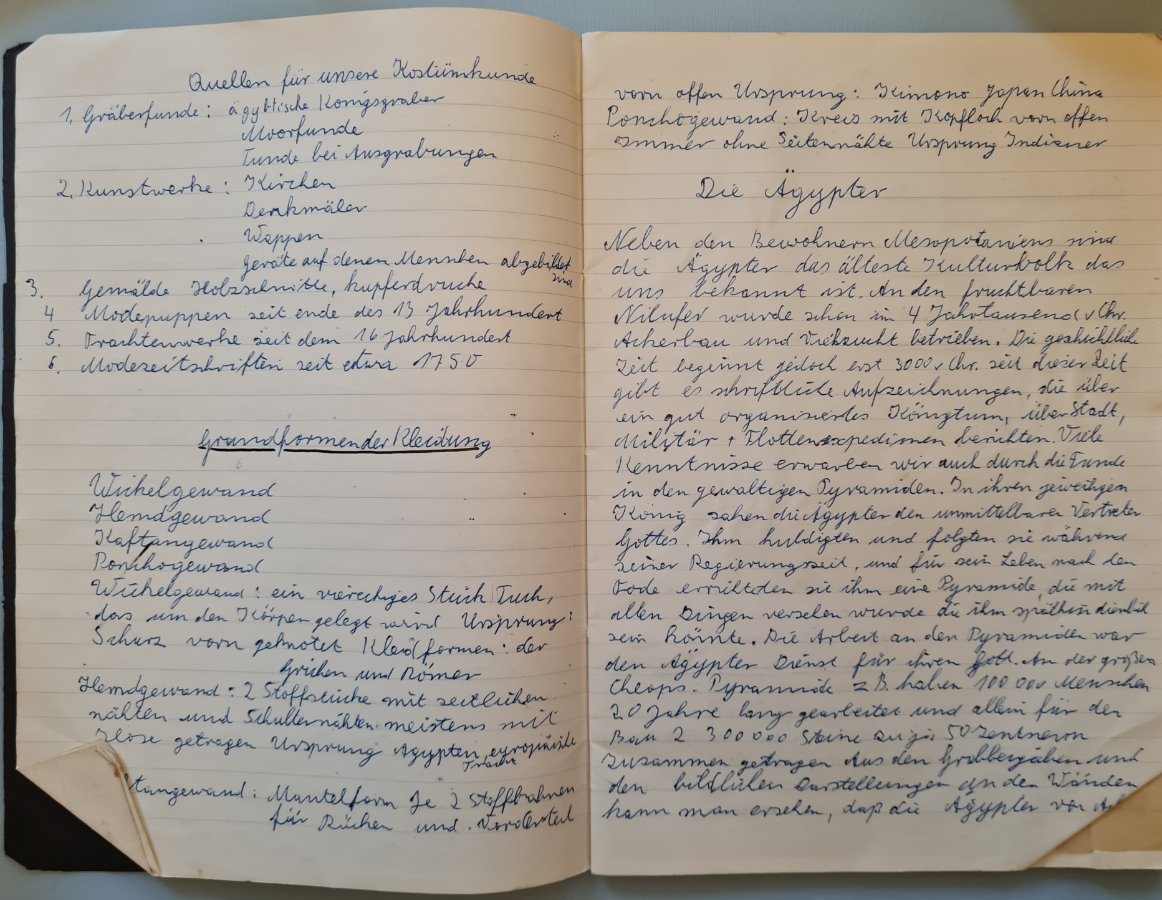 Quellen für unsere Kostümkunde
1. Gräberfunde: ägyptische Königsgräber
Moorfunde
Funde bei Ausgrabungen
2. Kunstwerke: Kirchen
Denkmäler
Wappen
Geräte auf denen Menschen abgebildet
sind
3. Gemälde Holzschnitte, kupferdrucke
4 Modepuppen seit ende des 13 Jahrhundert
5. Trachtenwerke seit dem 16 Jahrhundert
6. Modezeitschriften seit etwa 1750
Grundformen der Kleidung
Wickelgewand
Hemdgewand
Kaftangewand
Ponchogewand
Wickelgewand: ein viereckiges Stück Tuch,
das um den Körper gelegt wird Ursprung:
Schurz vorn geknotet Kleidformen: der
Griechen und Römer
Hemdgewand: 2 Stoffstücke mit seitlichen
nähten und Schulternähten meistens mit
Hose getragen Ursprung Ägypten, europäische
Tracht
tangewand: Mantelform Je 2 Stoffbahnen
für Rücken und Vorderteil
vorn offen Ursprung: Kimono Japan China
Ponchogewand: Kreis mit Kopfloch vorn offen
Immer ohne Seitennähte Ursprung Indianer
Die Ägypter
Neben den Bewohnern Mesopotamiens sind
die Ägypter das älteste Kulturvolk das
uns bekannt ist. An den fruchtbaren
Nilufer wurde schon im 4 Jahrtausend v Chr.
Ackerbau und Viehzucht betrieben. Die geschichtliche
Zeit beginnt jedoch erst 3000 v Chr. seit dieser Zeit
gibt es schriftliche Aufzeichnungen, die über
ein gut organisiertes Königtum, über Stadt,
Militär + Flottenexpedionen berichten. Viele
Kenntnisse erwarben wir auch durch die Funde
in den gewaltigen Pyramiden. In ihren jeweiligen
König sahen die Ägypter den unmittelbaren Vertreter
Gottes. Ihm huldigten und folgten sie während
seiner Regierungszeit, und für sein Leben nach den
Tode errichteten sie ihm eine Pyramide, die mit
allen Dingen versehen wurde die ihm späthin dienlich
sein könnte. Die Arbeit an den Pyramiden war
den Ägypter Dienst für ihren Gott. An der großen
Cheops-Pyramide z B. haben 100 000 Menschen
20 Jahre lang gearbeitet und allein für den
Bau 2 300 000 Steine zu je 50 Zentnern
zusammen getragen Aus den Grabbeigaben und
den bildlichen Darstellungen an den Wänden
kann man ersehen, daß die Ägypter von